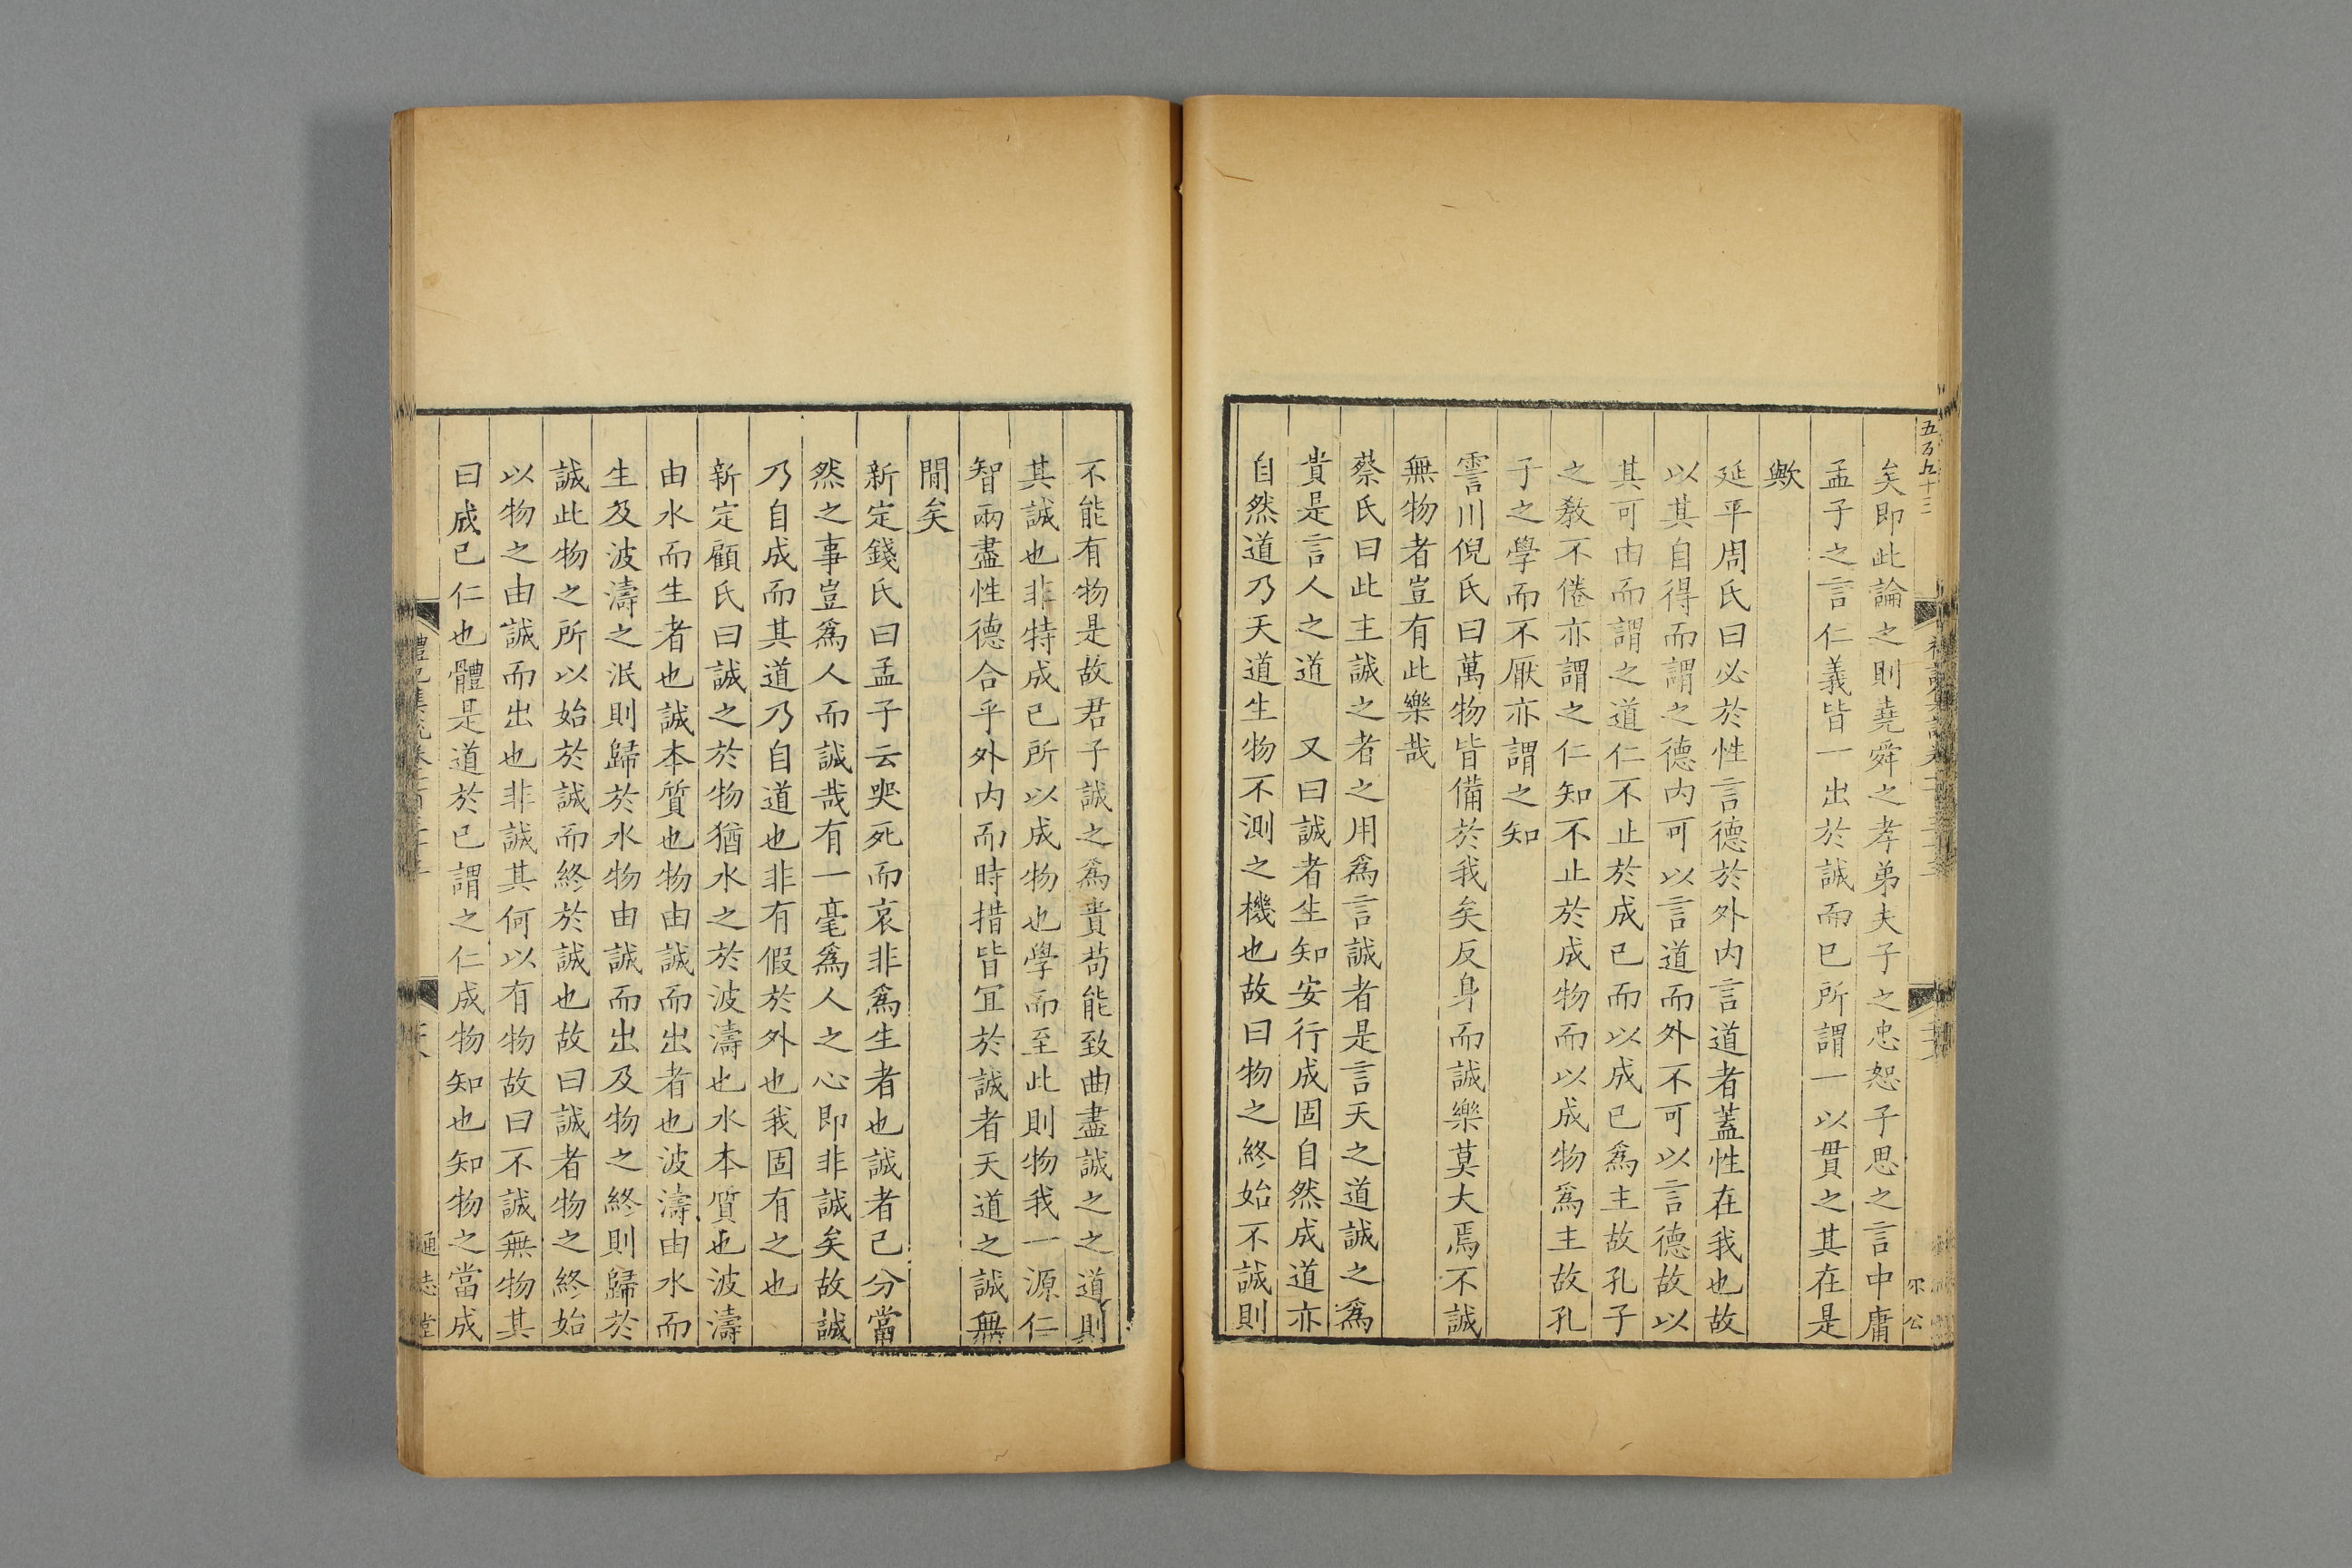 五百九十三
矣即此論之則堯舜之孝弟夫子之忠恕子思之言中庸
孟子之言仁義皆一出於誠而已所謂一以貫之其在是
歟
延平周氏曰必於性言德於外内言道者蓋性在我也故
以其自得而謂之德内可以言道而外不可以言德故以
其可由而謂之道仁不止於成已而以成已爲主故孔子
之教不倦亦謂之仁知不止於成物而以成物爲主故孔
子之學而不厭亦謂之知
霅川倪氏曰萬物皆備於我矣反身而誠樂莫大焉不誠
無物者豈有此樂哉
蔡氏曰此主誠之者之用爲言誠者是言天之道誠之爲
貴是言人之道　又曰誠者生知安行成固自然成道亦
自然道乃天道生物不測之機也故曰物之終始不誠則
不能有物是故君子誠之爲貴苟能致曲盡誠之之道則
其誠也非特成已所以成物也學而至此則物我一源仁
智兩盡性德合乎外内而時措皆宜於誠者天道之誠無
閒矣
新定錢氏曰孟子云哭死而哀非爲生者也誠者己分當
然之事豈爲人而誠哉有一毫爲人之心即非誠矣故誠
乃自成而其道乃自道也非有假於外也我固有之也
新定顧氏曰誠之於物猶水之於波濤也水本質也波濤
由水而生者也誠本質也物由誠而出者也波濤由水而
生及波濤之泯則歸於水物由誠而出及物之終則歸於
誠此物之所以始於誠而終於誠也故曰誠者物之終始
以物之由誠而出也非誠其何以有物故曰不誠無物其
曰成已仁也體是道於已謂之仁成物知也知物之當成
通志堂